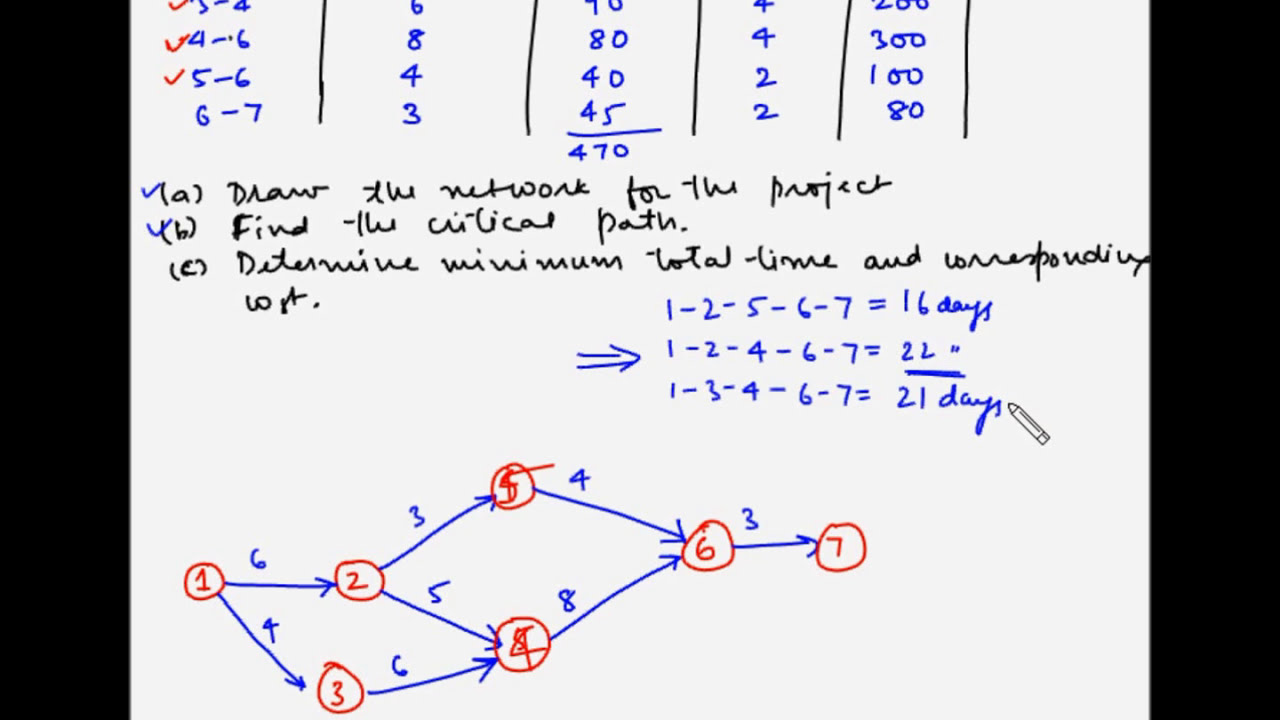 3-4 6 90 4 200
4-6 8 80 4 300
5-6 4 40 2 100
6-7 3 45 2 80
470
(a) Draw the network for the project
(b) Find the critical path.
(c) Determine minimum total time and corresponding
cost.
1-2-5-6-7 = 16 days
⇒ 1-2-4-6-7 = 22 "
1-3-4-6-7 = 21 days
5 4
3 6 3 7
6
1 2 5 8
4 4
6
3